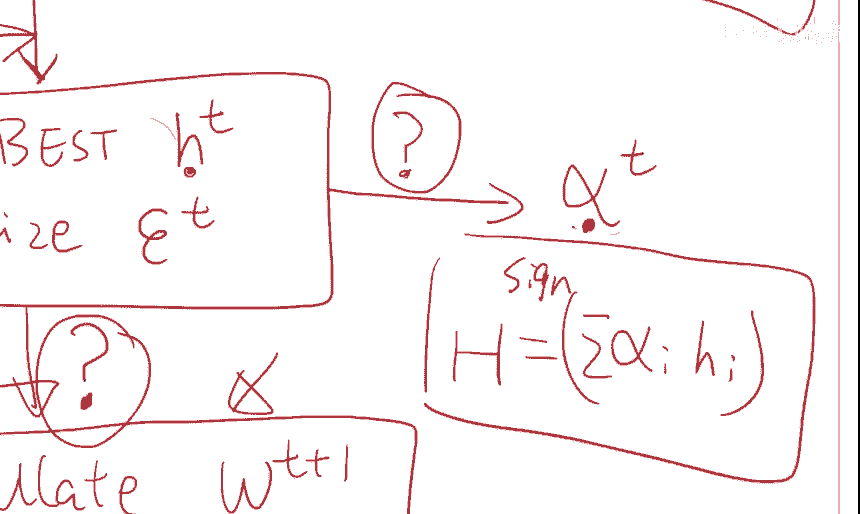 BEST hᵗ
?
αᵗ
ize εᵗ
sign
H = (Σαᵢ hᵢ)
?
α
ulate Wᵗ⁺¹